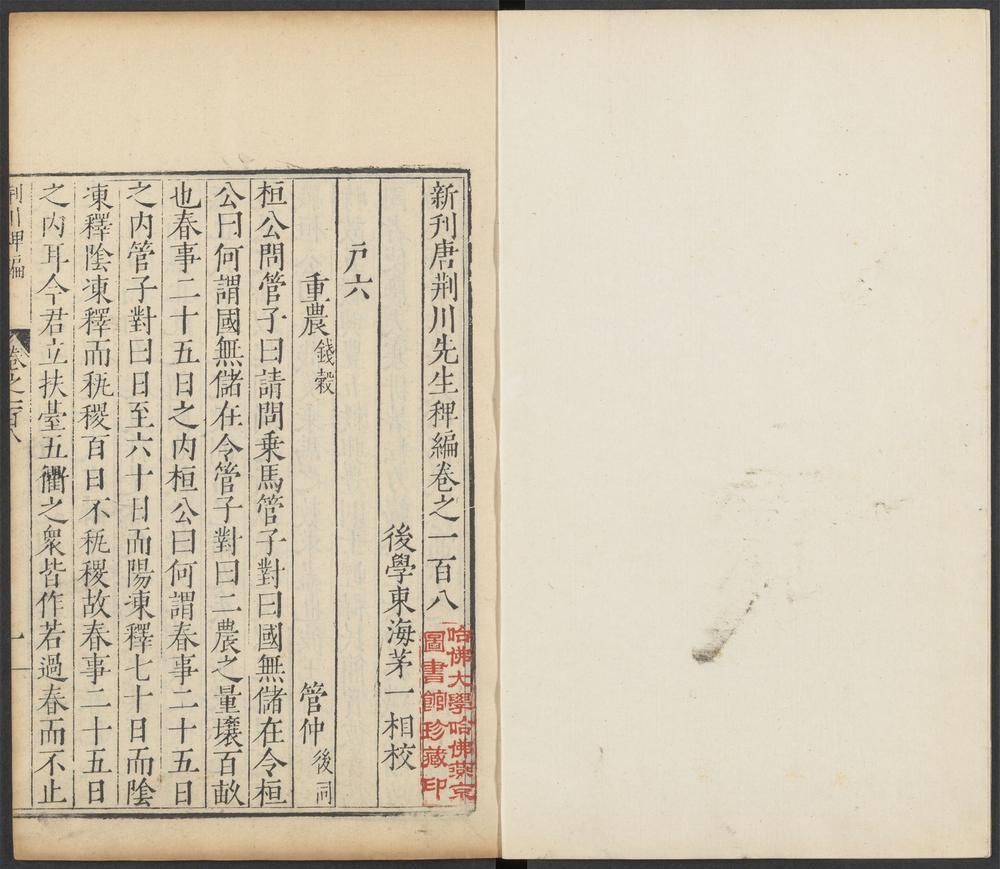 新刊唐荆川先生稗編卷之一百八
後學東海茅一相校
戶六
重農 錢穀 管仲 後同
桓公問管子曰請問乘馬管子對曰國無儲在令桓
公曰何謂國無儲在令管子對曰一農之量壤百畝
也春事二十五日之内桓公曰何謂春事二十五日
之内管子對曰日至六十日而陽凍釋七十日而陰
凍釋陰凍釋而秇稷百日不秇稷故春事二十五日
之内耳今君立扶臺五衢之衆皆作若過春而不止
荆川稗編 卷之一百八 一
哈佛大學哈佛燕京
圖書館珍藏印